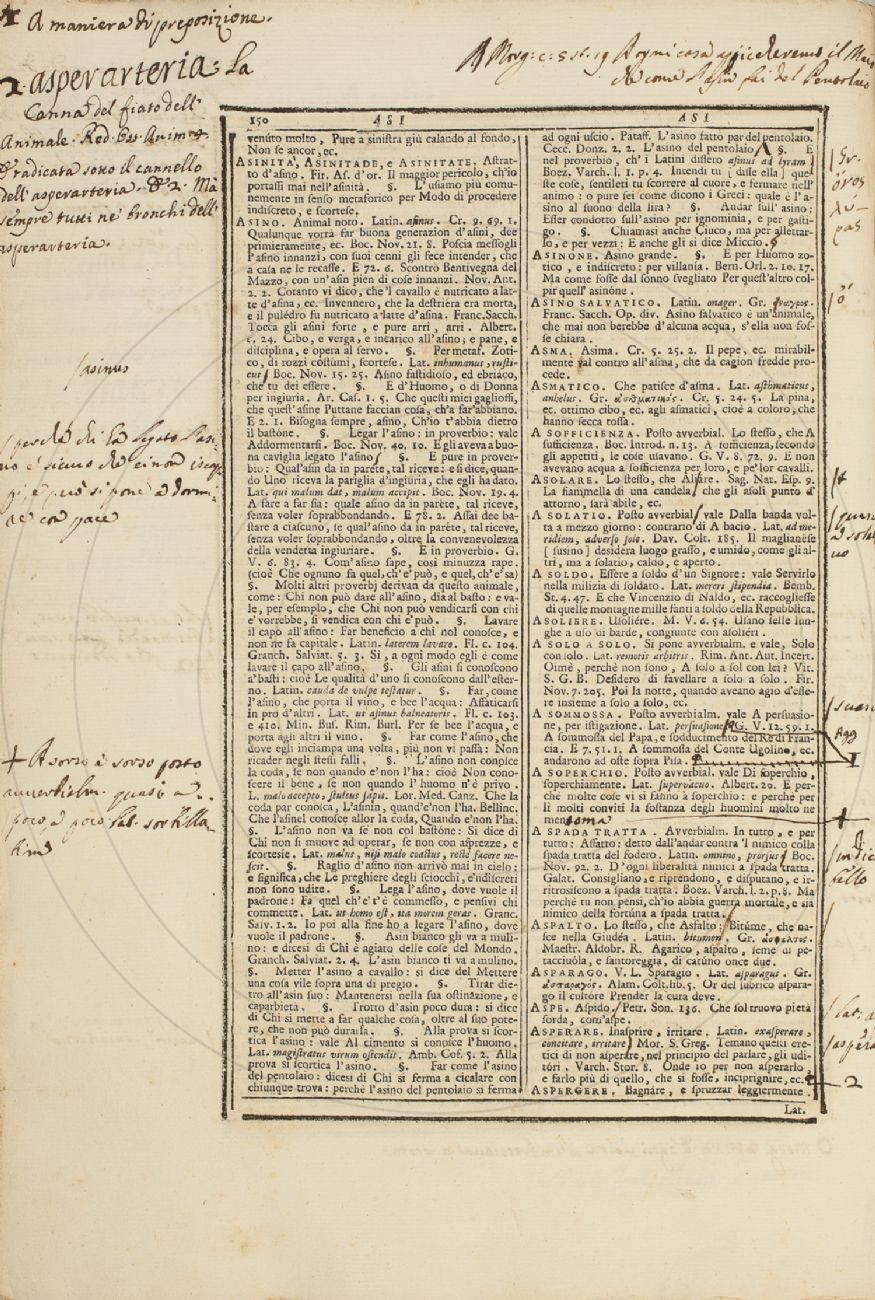 1 A maniera di preposizione.
2. asperarteria. La
Canna del fiato dell'
Animale. Red. Oss. Anim.
radicata sotto il cannello
dell'asperarteria. E 2. Ma
sempre tutti ne' bronchi dell'
asperarteria.
asinus
+ A sorso a sorso posto
avverbialm. quasi a
poco a poco Lat.
150 ASI ASI
venuto molto, Pure a sinistra giù calando al fondo,
Non se ancor, ec.
ASINITA', ASINITADE, e ASINITATE. Astrat-
to d'asino. Fir. As. d'or. Il maggior pericolo, ch'io
portassi mai nell'asinità. §. L'usiamo più comu-
nemente in senso metaforico per Modo di procedere
indiscreto, e scortese.
ASINO. Animal noto. Latin. asinus. Cr. 9. 69. 1.
Qualunque vorrà far buona generazion d'asini, dee
primieramente, ec. Boc. Nov. 21. 8. Poscia messogli
l'asino innanzi, con suoi cenni gli fece intender, che
a casa ne le recasse. E 72. 6. Scontrò Bentivegna del
Mazzo, con un'asin pien di cose innanzi. Nov. Ant.
2. 2. Cotanto vi dico, che 'l cavallo è nutricato a lat-
te d'asina, ec. Invennero, che la destriera era morta,
e il pulédro fu nutricato a latte d'asina. Franc. Sacch.
Tocca gli asini forte, e pure arri, arri. Albert.
c. 24. Cibo, e verga, e incarico all'asino; e pane, e
disciplina, e opera al servo. §. Per metaf. Zoti-
co, di rozzi costumi, scortese. Lat. inhumanus, rusti-
cus Boc. Nov. 15. 25. Asino fastidioso, ed ebriaco,
che tu dei essere. §. E d'Huomo, o di Donna
per ingiuria. Ar. Cas. 1. 5. Che questi miei gaglioffi,
che quest'asine Puttane faccian cosa, ch'a far'abbiano.
E 2. 1. Bisogna sempre, asino, Ch'io t'abbia dietro
il bastóne. §. Legar l'asino: in proverbio: vale
Addormentarsi. Boc. Nov. 40. 10. Egli aveva a buo-
na caviglia legato l'asino §. E pure in prover-
bio: Qual'asin dà in paréte, tal riceve: e si dice, quan-
do Uno riceva la pariglia d'ingiuria, che egli ha dato.
Lat. qui malum dat, malum accipit. Boc. Nov. 19. 4.
A fare a far sia: quale asino dà in paréte, tal riceve,
senza voler soprabbondando. E 78. 2. Assai dee ba-
stare a ciascuno, se qual'asino dà in paréte, tal riceve,
senza voler soprabbondando, oltre la convenevolezza
della vendetta ingiuriare. §. E in proverbio. G.
V. 6. 83. 4. Com'asino sape, così minuzza rape.
(cioè Che ognuno fa quel, ch'e' può, e quel, ch'e' sa)
§. Molti altri proverbj derivan da questo animale,
come: Chi non può dare all'asino, dia al basto: e va-
le, per esempio, che Chi non può vendicarsi con chi
e' vorrebbe, si vendica con chi e' può. §. Lavare
il capo all'asino: Far beneficio a chi nol conosce, e
non ne fa capitale. Latin. laterem lavare. Fl. c. 104.
Granch. Salviat. 5. 3. Si, a ogni modo egli è come
lavare il capo all'asino. §. Gli asini si conoscono
a' basti: cioè Le qualità d'uno si conoscono dall'ester-
no. Latin. cauda de vulpe testatur. §. Far, come
l'asino, che porta il vino, e bee l'acqua: Affaticarsi
in prò d'altri. Lat. ut asinus balneatoris. Fl. c. 103.
e 410. Min. Bus. Rim. Burl. Per se bee l'acqua, e
porta agli altri il vino. §. Far come l'asino, che
dove egli inciampa una volta, più non vi passa: Non
ricader negli stessi falli. §. L'asino non conosce
la coda, se non quando e' non l'ha: cioè Non cono-
scere il bene, se non quando l'huomo n'è privo.
L. malo accepto, stultus sapit. Lor. Med. Canz. Che la
coda par conosca, L'asinin, quand'e' non l'ha. Bellinc.
Che l'asinel conosce allor la coda, Quando e' non l'ha.
§. L'asino non va se non col bastóne: Si dice di
Chi non si muove ad operar, se non con asprezze, e
scortesie. Lat. malus, nisi malo coactus, recte facere ne-
scit. §. Raglio d'asino non arrivò mai in cielo:
e significa, che Le preghiere degli sciocchi, e' indiscreti
non sono udite. §. Lega l'asino, dove vuole il
padrone: Fa quel ch'e' t'è commesso, e pensivi chi
commette. Lat. ut homo est, ita morem geras. Granc.
Salv. 1. 2. Io poi alla fine ho a legare l'asino, dove
vuole il padrone. §. Asin bianco gli va a muli-
no: e dicesi di Chi è agiato delle cose del Mondo.
Granch. Salviat. 2. 4. L'asin bianco ti va a mulino.
§. Metter l'asino a cavallo: si dice del Mettere
una cosa vile sopra una di pregio. §. Tirar die-
tro all'asin suo: Mantenersi nella sua ostinazione, e
caparbietà. §. Trotto d'asin poco dura: si dice
di Chi si mette a far qualche cosa, oltre al suo pote-
re, che non può durarla. §. Alla prova si scor-
tica l'asino: vale Al cimento si conosce l'huomo.
Lat. magistratus virum ostendit. Amb. Cof. 5. 2. Alla
prova si iscortica l'asino. §. Far come l'asino
del pentolaio: dicesi di Chi si ferma a cicalare con
chiunque trova: perchè l'asino del pentolaio si ferma
ad ogni uscio. Pataff. L'asino fatto par del pentolaio.
Cecc. Donz. 2. 2. L'asino del pentolaio §. E
nel proverbio, ch'i Latini dissero asinus ad lyram
Boez. Varch. l. 1. p. 4. Intendi tu [disse ella] que-
ste cose, sentileti tu scorrere al cuore, e fermare nell'
animo: o pure sei come dicono i Greci: quale è l'a-
sino al suono della lira? §. Andar sull'asino:
Esser condotto sull'asino per ignominia, e per gasti-
go. §. Chiamasi anche Ciuco, ma per allettar-
lo, e per vezzi: E anche gli si dice Miccio.
ASINONE. Asino grande. §. E per Huomo zo-
tico, e indiscreto: per villania. Bern. Orl. 2. 10. 17.
Ma come fosse dal sonno svegliato Per quest'altro col-
par quell'asinóne.
ASINO SALVATICO. Latin. onager. Gr. ὄναγρος.
Franc. Sacch. Op. div. Asino salvatico è un'animale,
che mai non berebbe d'alcuna acqua, s'ella non fos-
se chiara.
ASMA. Asima. Cr. 5. 25. 2. Il pepe, ec. mirabil-
mente val contro all'asma, che da cagion fredde pro-
cede.
ASMATICO. Che patisce d'asma. Lat. asthmaticus,
anhelus. Gr. ἀσθματικός. Cr. 5. 24. 5. La pina,
ec. ottimo cibo, ec. agli asmatici, cioè a coloro, che
hanno secca tossa.
A SOFFICIENZA. Posto avverbial. Lo stesso, che A
sufficienza. Boc. Introd. n. 13. A sofficienza, secondo
gli appetiti, le cose usavano. G. V. 8. 72. 9. E non
avevano acqua a sofficienza per loro, e pe' lor cavalli.
ASOLARE. Lo stesso, che Aliare. Sag. Nat. Esp. 9.
La fiammella di una candela, che gli asoli punto d'
attorno, sarà abile, ec.
A SOLATIO. Posto avverbial vale Dalla banda vol-
ta a mezzo giorno: contrario di A bacio. Lat. ad me-
ridiem, adverso sole. Dav. Colt. 185. Il maglianése
[susino] desidera luogo grasso, e umido, come gli al-
tri, ma a solatio, caldo, e aperto.
A SOLDO. Essere a soldo d'un Signore: vale Servirlo
nella milizia di soldato. Lat. mereri stipendia. Bemb.
St. 4. 47. E che Vincenzio di Naldo, ec. raccogliesse
di quelle montagne mille fanti a soldo della Repubblica.
ASOLIERE. Usoliére. M. V. 6. 54. Usano selle lun-
ghe a uso di barde, congiunte con asoliéri.
A SOLO A SOLO. Si pone avverbialm. e vale, Solo
con solo. Lat. remotis arbitris. Rim. Ant. Aut. Incert.
Oimè, perchè non sono, A solo a sol con lei? Vit.
S. G. B. Desidero di favellare a solo a solo. Fir.
Nov. 7. 205. Poi la notte, quando aveano agio d'esse-
re insieme a solo a solo, ec.
A SOMMOSSA. Posto avverbialm. vale A persuasio-
ne, per istigazione. Lat. persuasione G. V. 12. 59. 1.
A sommossa del Papa, e sodducimento del Re di Fran-
cia. E 7. 51. 1. A sommossa del Conte Ugolino, ec.
andarono ad oste sopra Pisa.
A SOPERCHIO. Posto avverbial. vale Di soperchio,
soperchiamente. Lat. supervacuo. Albert. 20. E per-
chè molte cose vi si fanno a soperchio: e perchè per
li molti conviti la sostanza degli huomini molto ne
menoma
A SPADA TRATTA. Avverbialm. In tutto, e per
tutto: Affatto: detto dall'andar contra 'l nimico colla
spada tratta del fodero. Latin. omnino, prorsus Boc.
Nov. 92. 2. D'ogni liberalità nimici a spada tratta.
Galat. Consigliano, e riprendono, e disputano, e ir-
ritrosiscono a spada tratta. Boez. Varch. l. 2. p. 8. Ma
perchè tu non pensi, ch'io abbia guerra mortale, e sia
nimico della fortúna a spada tratta.
ASPALTO. Lo stesso, che Asfalto: Bitúme, che na-
sce nella Giudéa. Latin. bitumen. Gr. ἄσφαλτος.
Maestr. Aldobr. R. Agarico, aspalto, seme di pe-
tacciuóla, e santoreggia, di catúno once due.
ASPARAGO. V. L. Sparagio. Lat. asparagus. Gr.
ἀσπάραγος. Alam. Colt. lib. 5. Or del lubrico aspara-
go il cultóre Prender la cura deve.
ASPE. Aspido. Petr. Son. 136. Che sol truovo pietà
sorda, com'aspe.
ASPERARE. Inasprire, irritare. Latin. exasperare,
concitare, irritare Mor. S. Greg. Temano quelli ere-
tici di non asperare, nel principio del parlare, gli udi-
tóri. Varch. Stor. 8. Onde io per non asperarlo,
e farlo più di quello, che si fosse, inciprignire, ec. 2
ASPERGERE. Bagnáre, e spruzzar leggiermente.
Lat.